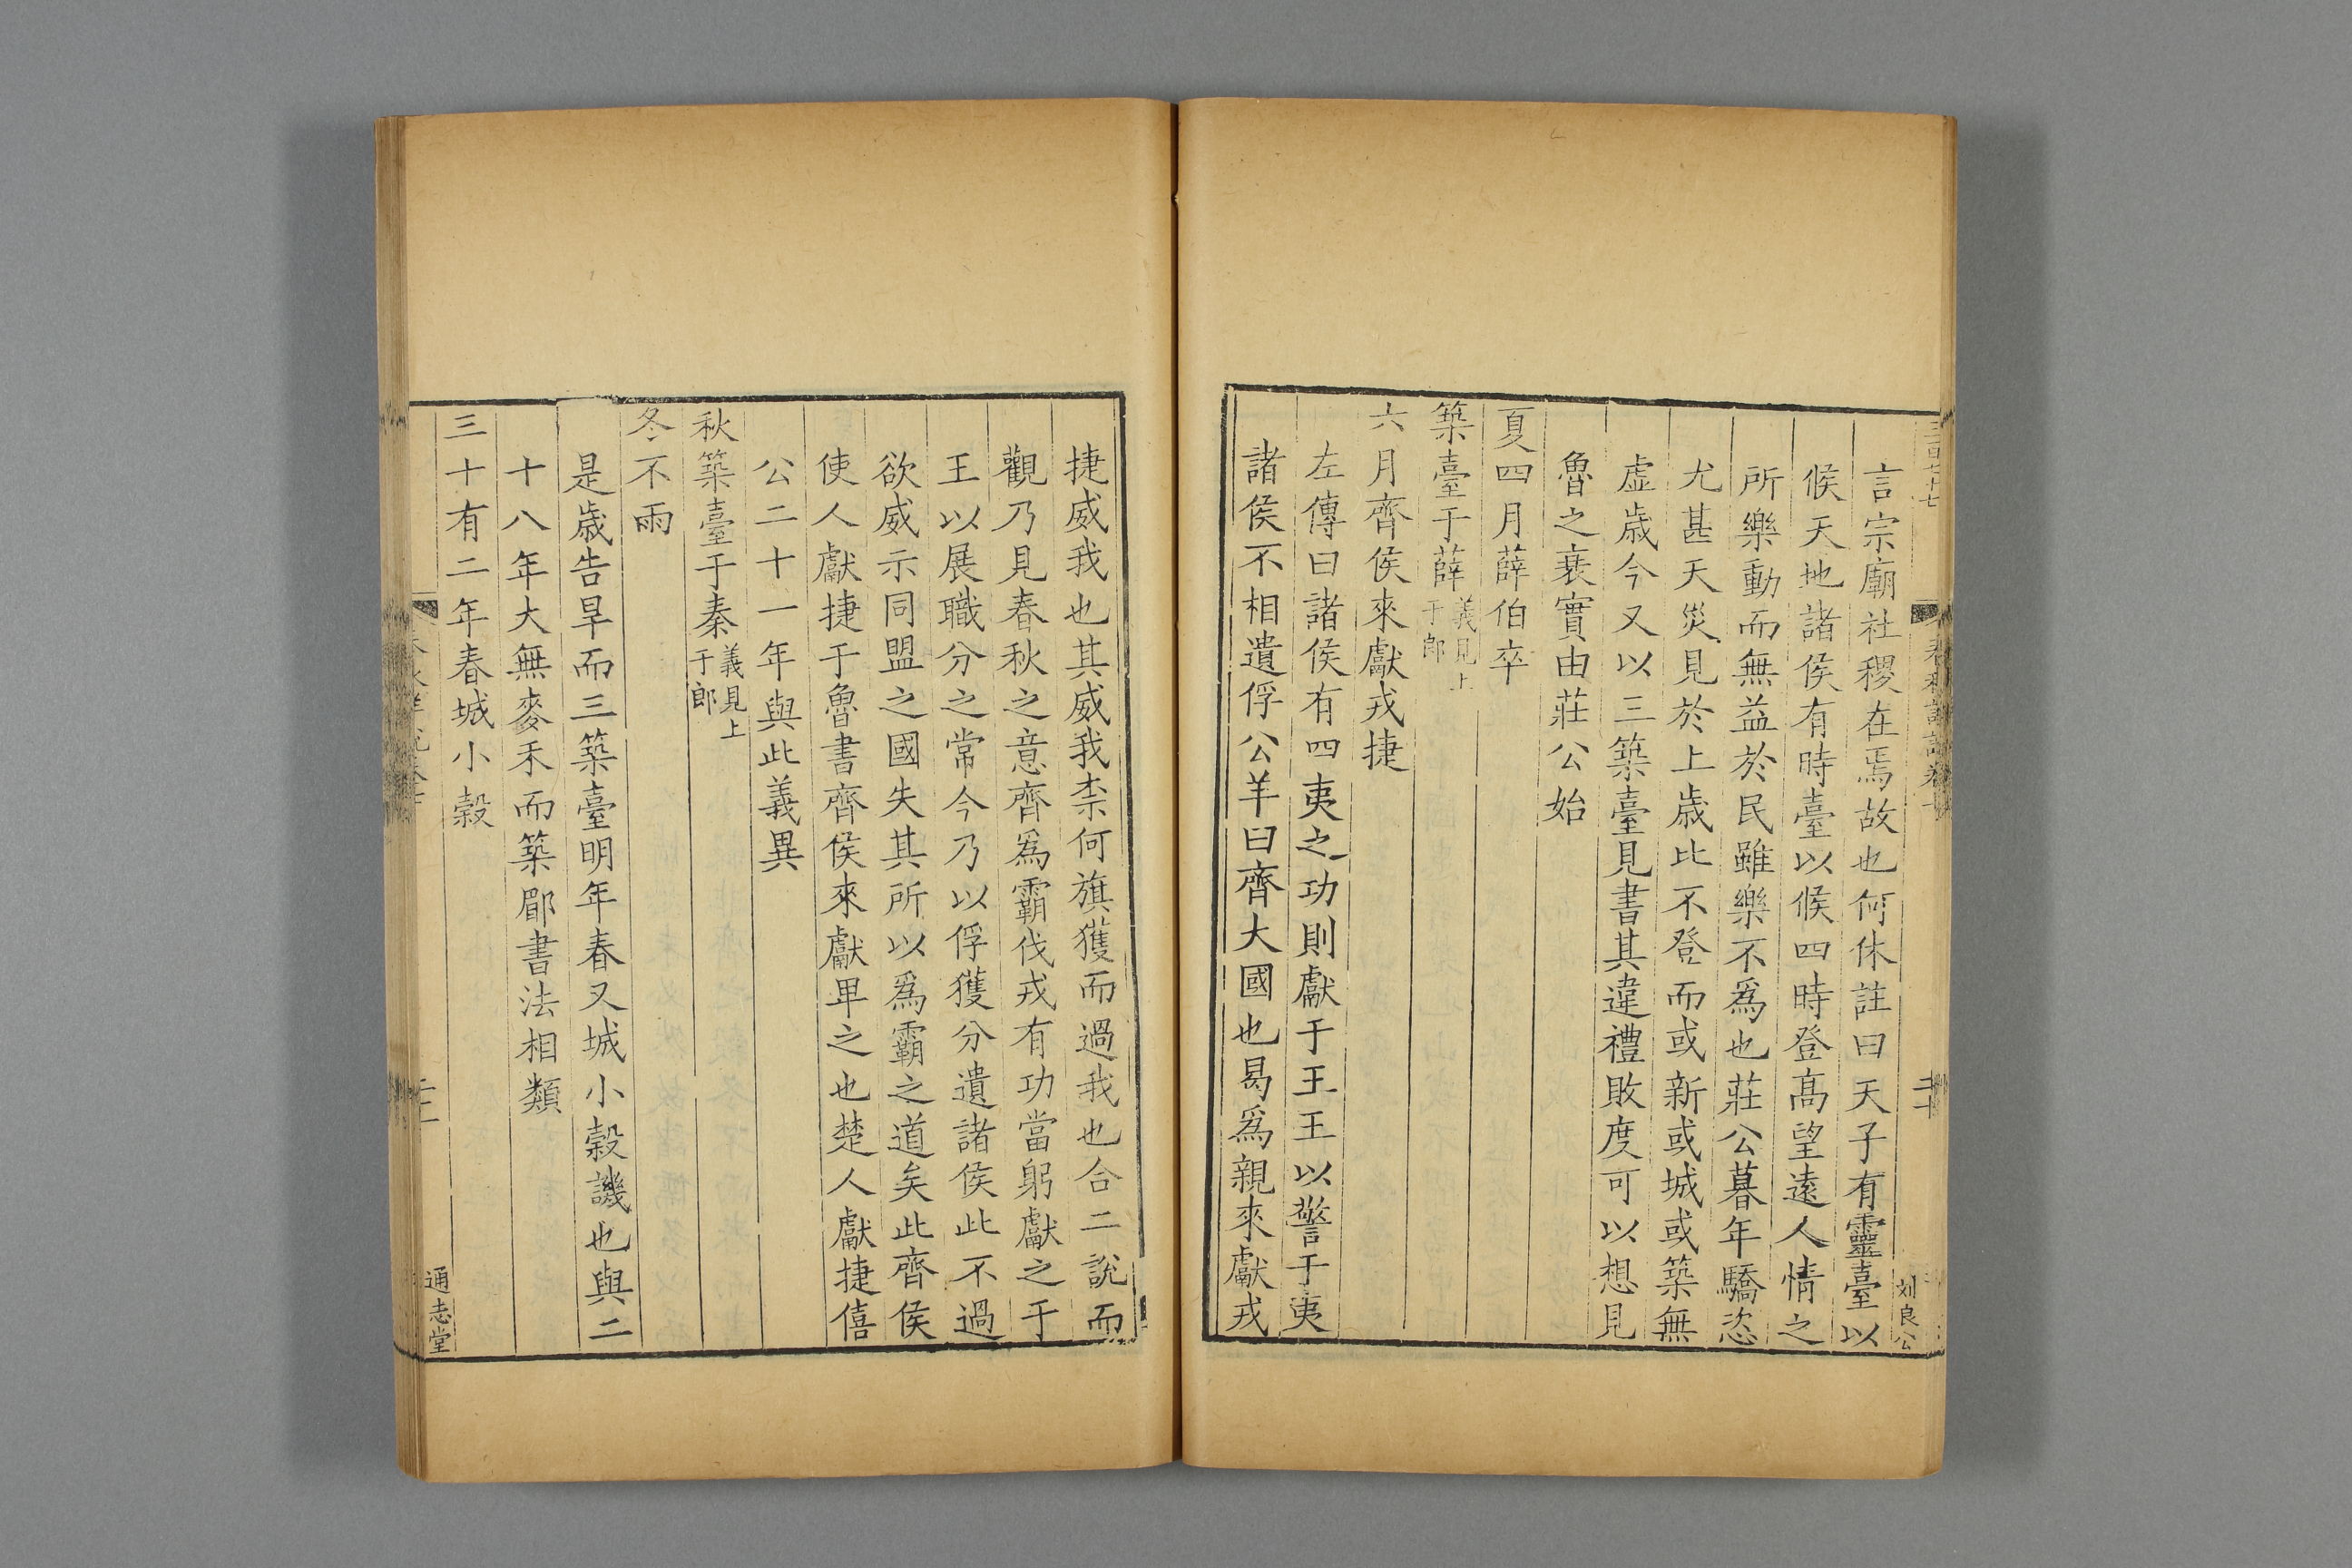 言宗廟社稷在焉故也何休註曰天子有靈臺以
候天地諸侯有時臺以候四時登高望遠人情之
所樂動而無益於民雖樂不爲也莊公暮年驕恣
尤甚天災見於上歲比不登而或新或城或築無
虛歲今又以三築臺見書其違禮敗度可以想見
魯之衰實由莊公始
夏四月薛伯卒
築臺于薛義見上于郎
六月齊侯來獻戎捷
左傳曰諸侯有四夷之功則獻于王王以警于夷
諸侯不相遺俘公羊曰齊大國也曷爲親來獻戎
二十
刘良公
捷威我也其威我柰何旗獲而過我也合二說而
觀乃見春秋之意齊爲霸伐戎有功當躬獻之于
王以展職分之常今乃以俘獲分遺諸侯此不過
欲威示同盟之國失其所以爲霸之道矣此齊侯
使人獻捷于魯書齊侯來獻卑之也楚人獻捷僖
公二十一年與此義異
秋築臺于秦義見上于郎
冬不雨
是歲告旱而三築臺明年春又城小穀譏也與二
十八年大無麥禾而築郿書法相類
三十有二年春城小穀
通志堂